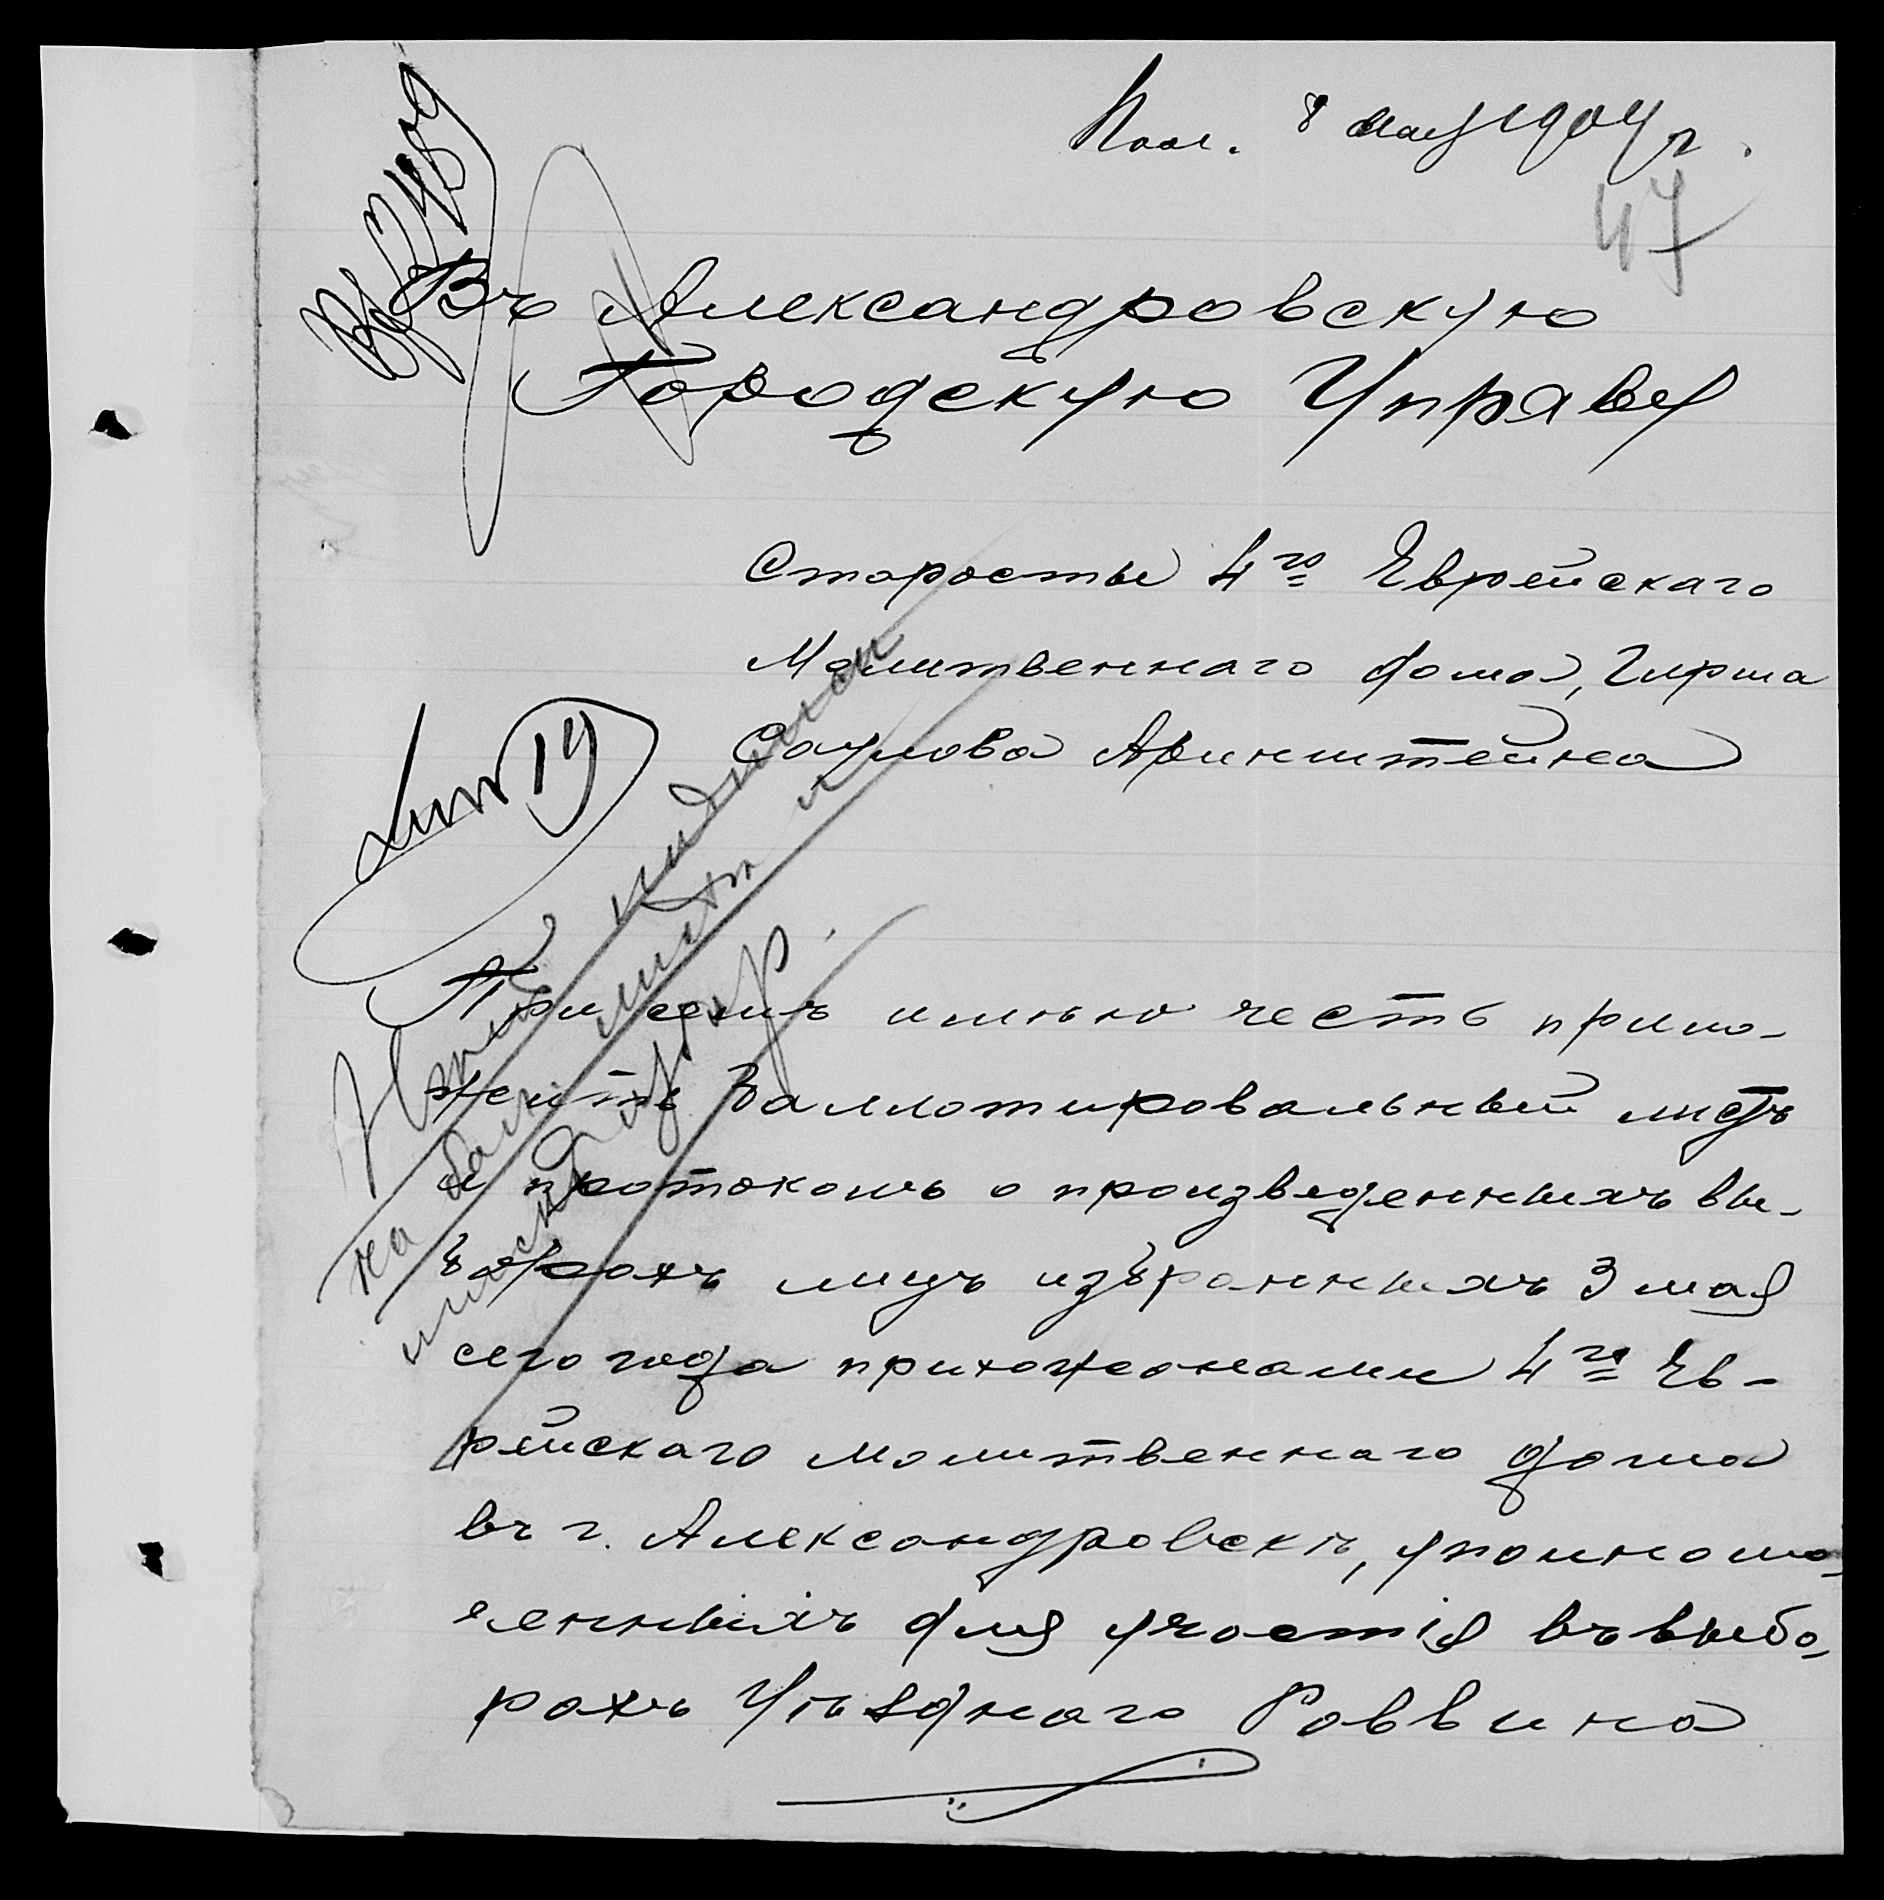 Пол. 8 мая 1904 г.
47
Въ Александровскую
Городскую Управу
Старосты 4го Еврейскаго
Молитвеннаго дома, Гирша
Саулова Аринштейна
При семъ имѣю честь прило-
жить баллотировальный листъ
и протоколъ о произведенныхъ вы-
борахъ лицъ избранныхъ 3 мая
сего года прихожанами 4го Ев-
рейскаго молитвеннаго дома
въ г. Александровскѣ, уполномо-
ченныхъ для участія въ выбо-
рахъ Уѣзднаго Раввина